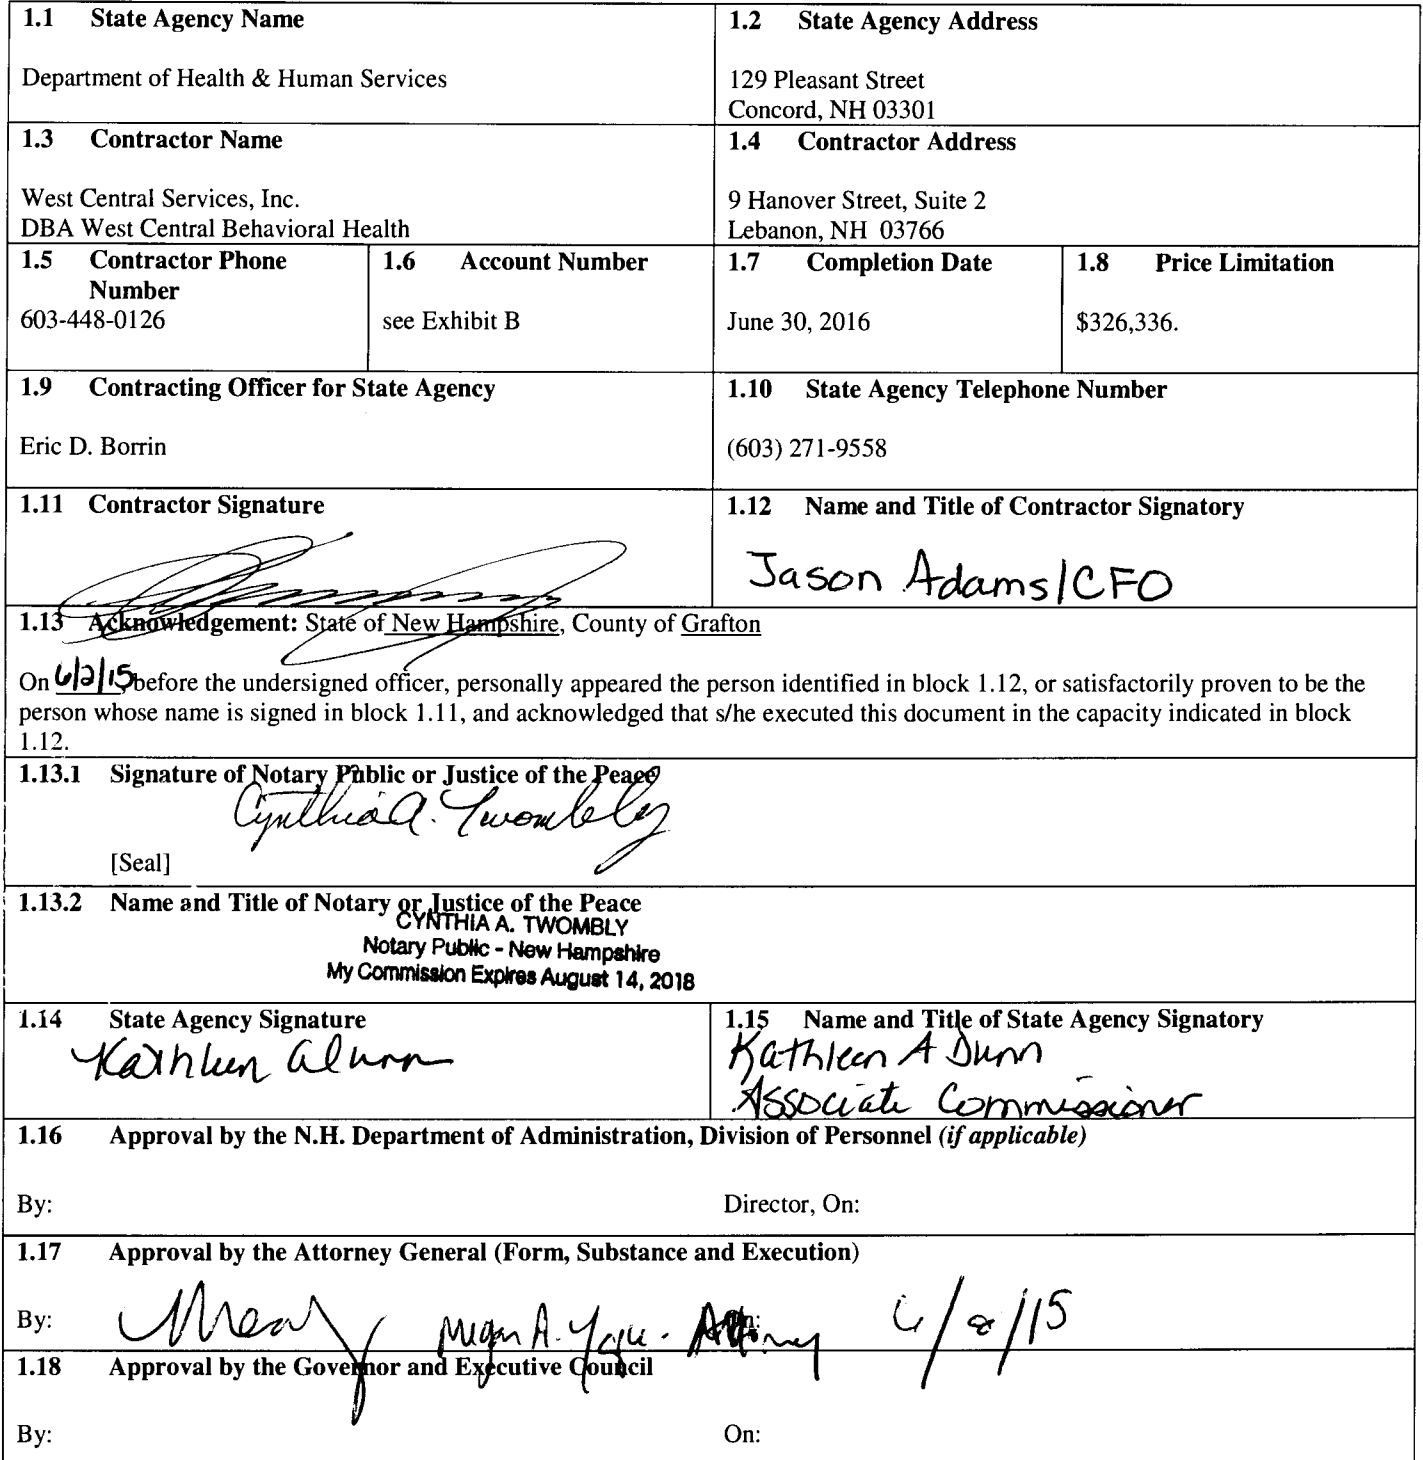 1.1 State Agency Name
Department of Health & Human Services
1.2 State Agency Address
129 Pleasant Street
Concord, NH 03301
1.3 Contractor Name
West Central Services, Inc.
DBA West Central Behavioral Health
1.4 Contractor Address
9 Hanover Street, Suite 2
Lebanon, NH 03766
1.5 Contractor Phone
Number
603-448-0126
1.6 Account Number
see Exhibit B
1.7 Completion Date
June 30, 2016
1.8 Price Limitation
$326,336.
1.9 Contracting Officer for State Agency
Eric D. Borrin
1.10 State Agency Telephone Number
(603) 271-9558
1.11 Contractor Signature
1.12 Name and Title of Contractor Signatory
Jason Adams/CFO
1.13 Acknowledgement: State of New Hampshire, County of Grafton
On 6/2/15, before the undersigned officer, personally appeared the person identified in block 1.12, or satisfactorily proven to be the
person whose name is signed in block 1.11, and acknowledged that s/he executed this document in the capacity indicated in block
1.12.
1.13.1 Signature of Notary Public or Justice of the Peace
Cynthia A. Twombly
[Seal]
1.13.2 Name and Title of Notary or Justice of the Peace
CYNTHIA A. TWOMBLY
Notary Public - New Hampshire
My Commission Expires August 14, 2018
1.14 State Agency Signature
Kathleen A Dunn
1.15 Name and Title of State Agency Signatory
Kathleen A Dunn
Associate Commissioner
1.16 Approval by the N.H. Department of Administration, Division of Personnel (if applicable)
By: Director, On:
1.17 Approval by the Attorney General (Form, Substance and Execution)
By: Megan A. - Attorney On: 6/8/15
1.18 Approval by the Governor and Executive Council
By: On: